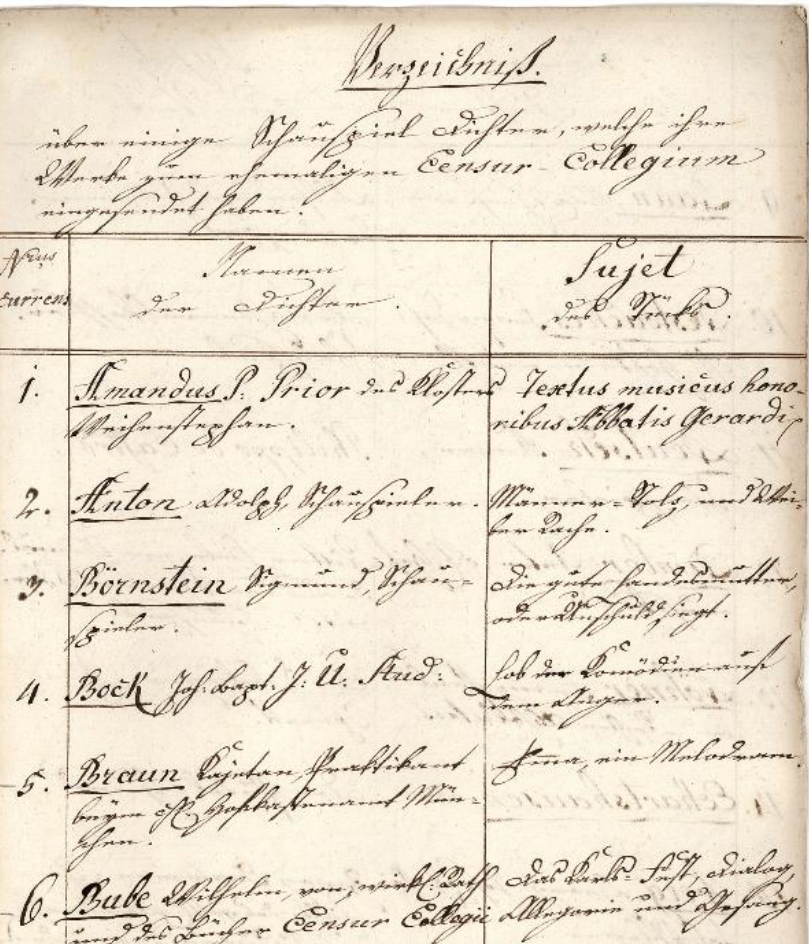 Verzeichniß.
über einige Schauspiel Dichter, welche ihre
Werke zum ehemaligen Censur-Collegium
eingesendet haben.
Nrus
Currens
Namen
der Dichter.
Sujet
des Stücks.
1. Amandus P. Prior des Klosters
Weihenstephan.
Textus musicus hono-
ribus Abbatis Gerardi
2. Anton Adolph, Schauspieler.
Männer-Stolz, und Wei-
ber Rache.
3. Börnstein Sigmund, Schau-
spieler.
Die gute Landesmutter,
oder Unschuld siegt.
4. Bock Joh. Bapt. J. U. Stud:
Lob der Komödien auf
dem Anger.
5. Braun Kajetan, Praktikant
beym Hofkastenamt Mün-
chen.
Emma, ein Melodram.
6. Bube Wilhelm, von, wirkl: Rath
und des Bücher Censur Collegii
Das Karls-Fest, Dialog,
Allegorie und Gesang.